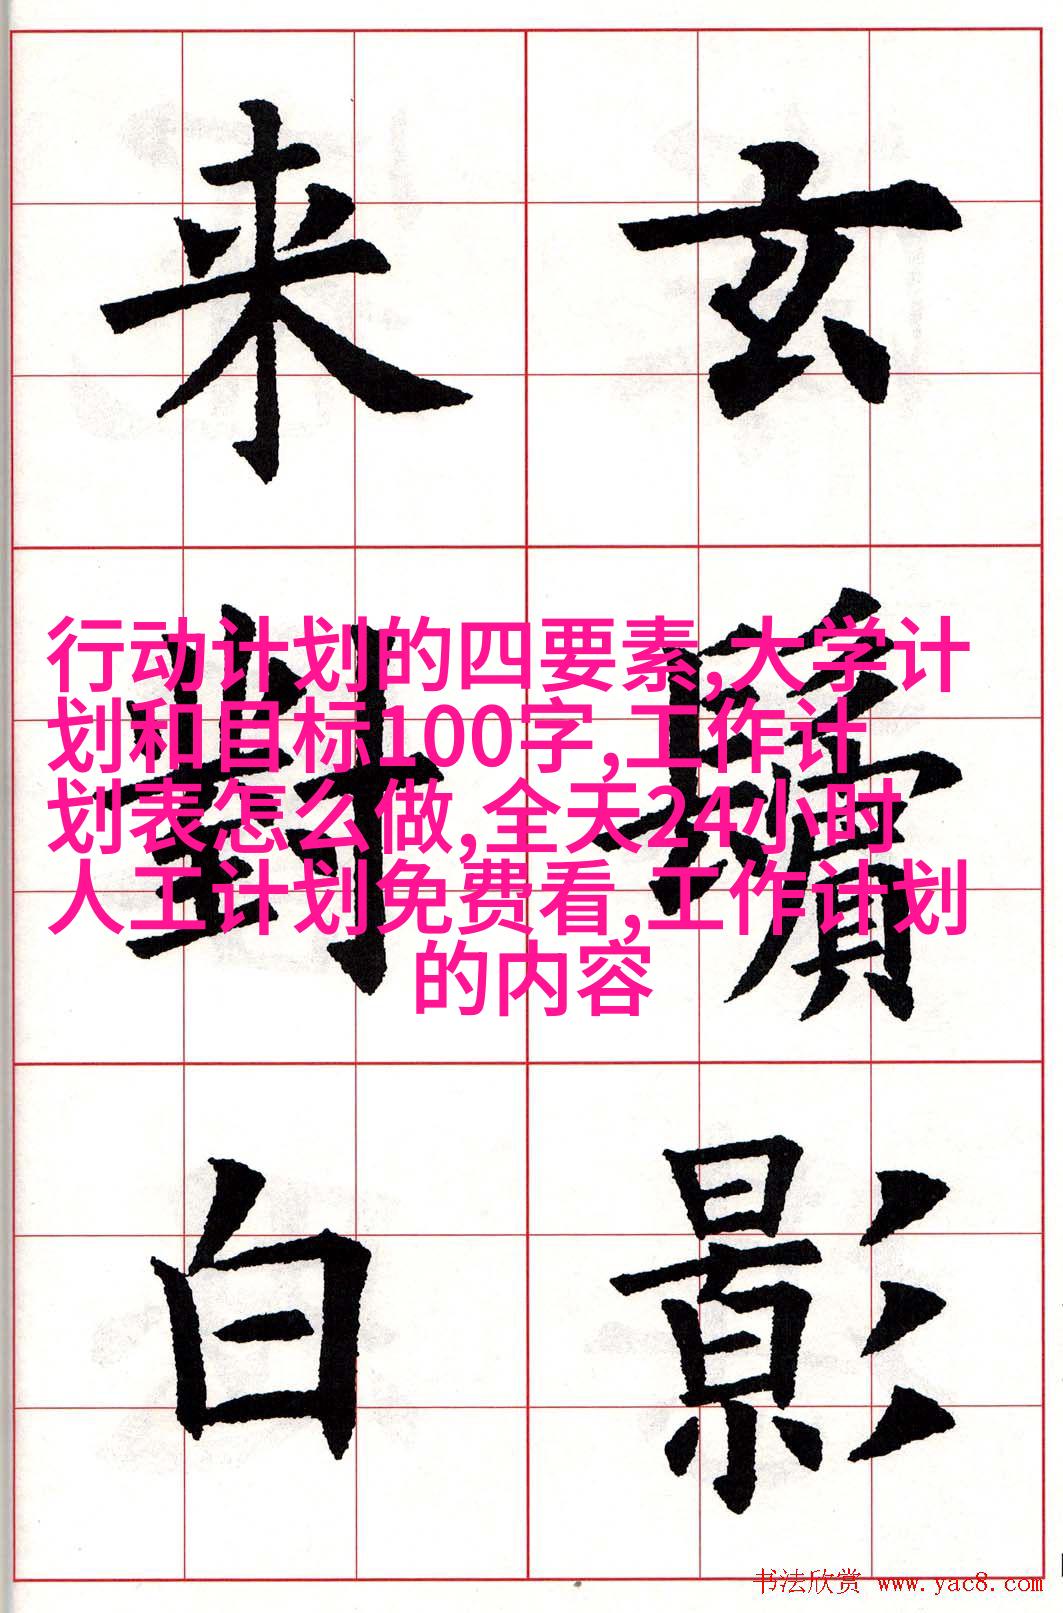 玄鬢影
来對白
行动计划的四要素,大学计
划和目标100字,工作计
划表怎么做,全天24小时
人工计划免费看,工作计划
的内容
书法欣赏 www.yac8.com